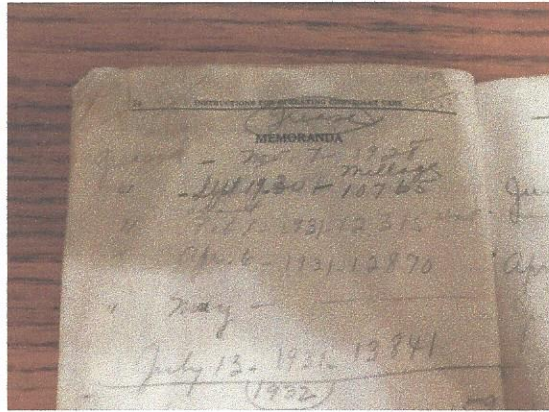 INSTRUCTIONS FOR OPERATING CHEVROLET CARS
Grease
MEMORANDA
Greased - 1928
Millage
" - Sept 1930 - 10765
" Feb 1 - 1931 - 12315
" Apr. 6 - 1931 - 12870
" May -
July 13 - 1931 - 13841
1932